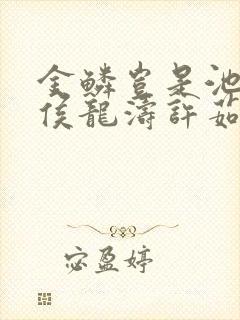 金鳞岂是池
侯龍濤許茹
宓盈婷